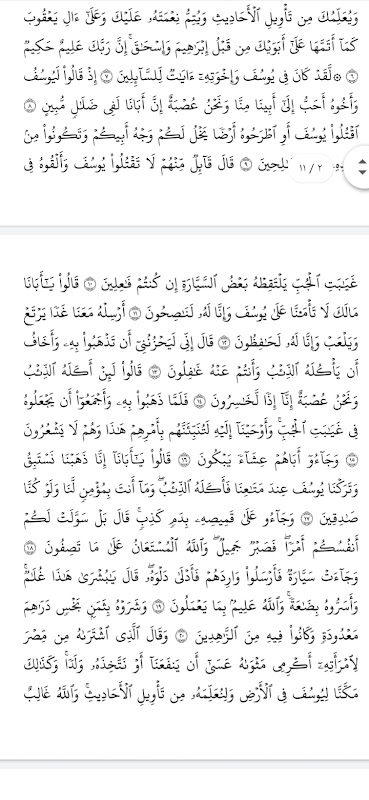 وَيُعَلِّمُكَ مِن تَأْوِيلِ ٱلْأَحَادِيثِ وَيُتِمُّ نِعْمَتَهُۥ عَلَيْكَ وَعَلَىٰٓ ءَالِ يَعْقُوبَ
كَمَآ أَتَمَّهَا عَلَىٰٓ أَبَوَيْكَ مِن قَبْلُ إِبْرَٰهِيمَ وَإِسْحَٰقَۚ إِنَّ رَبَّكَ عَلِيمٌ حَكِيمٌ
٦ ۞ لَّقَدْ كَانَ فِى يُوسُفَ وَإِخْوَتِهِۦٓ ءَايَٰتٌ لِّلسَّآئِلِينَ ٧ إِذْ قَالُوا۟ لَيُوسُفُ
وَأَخُوهُ أَحَبُّ إِلَىٰٓ أَبِينَا مِنَّا وَنَحْنُ عُصْبَةٌ إِنَّ أَبَانَا لَفِى ضَلَٰلٍ مُّبِينٍ ٨
ٱقْتُلُوا۟ يُوسُفَ أَوِ ٱطْرَحُوهُ أَرْضًا يَخْلُ لَكُمْ وَجْهُ أَبِيكُمْ وَتَكُونُوا۟ مِنۢ
٩ قَالَ قَآئِلٌ مِّنْهُمْ لَا تَقْتُلُوا۟ يُوسُفَ وَأَلْقُوهُ فِى
٢ / ١١
غَيَٰبَتِ ٱلْجُبِّ يَلْتَقِطْهُ بَعْضُ ٱلسَّيَّارَةِ إِن كُنتُمْ فَٰعِلِينَ ١٠ قَالُوا۟ يَٰٓأَبَانَا
مَالَكَ لَا تَأْمَ۫نَّا عَلَىٰ يُوسُفَ وَإِنَّا لَهُۥ لَنَٰصِحُونَ ١١ أَرْسِلْهُ مَعَنَا غَدًا يَرْتَعْ
وَيَلْعَبْ وَإِنَّا لَهُۥ لَحَٰفِظُونَ ١٢ قَالَ إِنِّى لَيَحْزُنُنِىٓ أَن تَذْهَبُوا۟ بِهِۦ وَأَخَافُ
أَن يَأْكُلَهُ ٱلذِّئْبُ وَأَنتُمْ عَنْهُ غَٰفِلُونَ ١٣ قَالُوا۟ لَئِنْ أَكَلَهُ ٱلذِّئْبُ
وَنَحْنُ عُصْبَةٌ إِنَّآ إِذًا لَّخَٰسِرُونَ ١٤ فَلَمَّا ذَهَبُوا۟ بِهِۦ وَأَجْمَعُوٓا۟ أَن يَجْعَلُوهُ
فِى غَيَٰبَتِ ٱلْجُبِّۚ وَأَوْحَيْنَآ إِلَيْهِ لَتُنَبِّئَنَّهُم بِأَمْرِهِمْ هَٰذَا وَهُمْ لَا يَشْعُرُونَ
١٥ وَجَآءُوٓ أَبَاهُمْ عِشَآءً يَبْكُونَ ١٦ قَالُوا۟ يَٰٓأَبَانَآ إِنَّا ذَهَبْنَا نَسْتَبِقُ
وَتَرَكْنَا يُوسُفَ عِندَ مَتَٰعِنَا فَأَكَلَهُ ٱلذِّئْبُۖ وَمَآ أَنتَ بِمُؤْمِنٍ لَّنَا وَلَوْ كُنَّا
صَٰدِقِينَ ١٧ وَجَآءُو عَلَىٰ قَمِيصِهِۦ بِدَمٍ كَذِبٍۚ قَالَ بَلْ سَوَّلَتْ لَكُمْ
أَنفُسُكُمْ أَمْرًاۖ فَصَبْرٌ جَمِيلٌۖ وَٱللَّهُ ٱلْمُسْتَعَانُ عَلَىٰ مَا تَصِفُونَ ١٨
وَجَآءَتْ سَيَّارَةٌ فَأَرْسَلُوا۟ وَارِدَهُمْ فَأَدْلَىٰ دَلْوَهُۥۖ قَالَ يَٰبُشْرَىٰ هَٰذَا غُلَٰمٌۚ
وَأَسَرُّوهُ بِضَٰعَةًۚ وَٱللَّهُ عَلِيمٌۢ بِمَا يَعْمَلُونَ ١٩ وَشَرَوْهُ بِثَمَنٍۭ بَخْسٍ دَرَٰهِمَ
مَعْدُودَةٍ وَكَانُوا۟ فِيهِ مِنَ ٱلزَّٰهِدِينَ ٢٠ وَقَالَ ٱلَّذِى ٱشْتَرَىٰهُ مِن مِّصْرَ
لِٱمْرَأَتِهِۦٓ أَكْرِمِى مَثْوَىٰهُ عَسَىٰٓ أَن يَنفَعَنَآ أَوْ نَتَّخِذَهُۥ وَلَدًاۚ وَكَذَٰلِكَ
مَكَّنَّا لِيُوسُفَ فِى ٱلْأَرْضِ وَلِنُعَلِّمَهُۥ مِن تَأْوِيلِ ٱلْأَحَادِيثِۚ وَٱللَّهُ غَالِبٌ